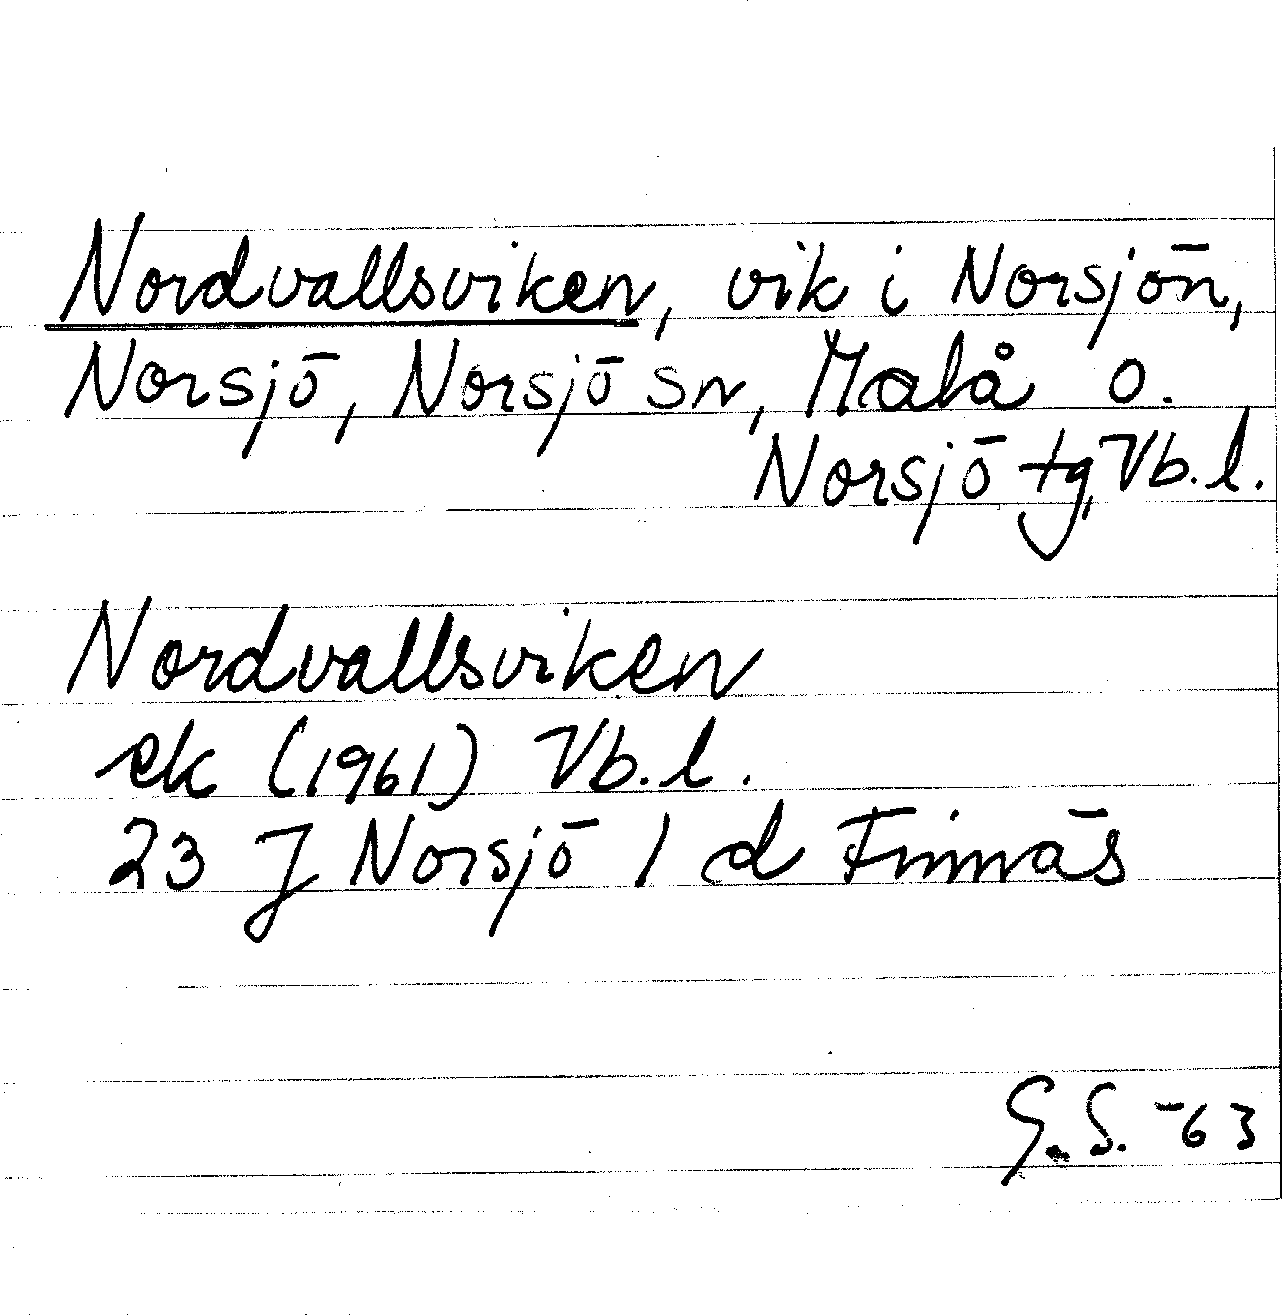 Nordvallsviken, vik i Norsjön,
Norsjö, Norsjö sn, Malå o.
Norsjö tg, Vb.l.
Nordvallsviken
ek (1961) Vb.l.
23 J Norsjö 1 d Finnäs
G.S. -63